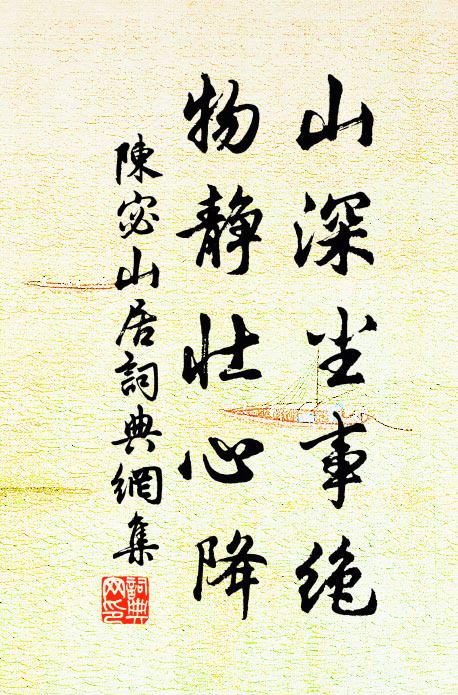 山深尘事绝
物静壮心降
陳宓山居詞典網集
詞典网印